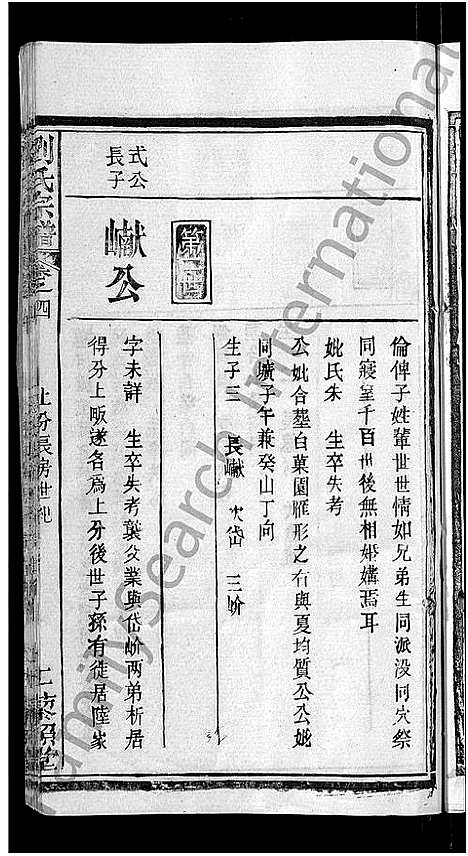 倫俾子姓輩世世情如兄弟生同派没同穴祭
同寢室千百世後無相婚媾焉耳
妣氏朱 生卒失考
公妣合塟白菓園雁形之右與夏均質公公妣
同壙子午兼癸山丁向
生子三 長巘 次岱 三岎
第四世
式公
長子
巘公
字未詳 生卒失考襲父業與岱岎兩弟析居
得分上畈遂名爲上分後世子孫有徒居陸家
劉氏宗譜
卷之四
上分長房世紀
FamilySearch International